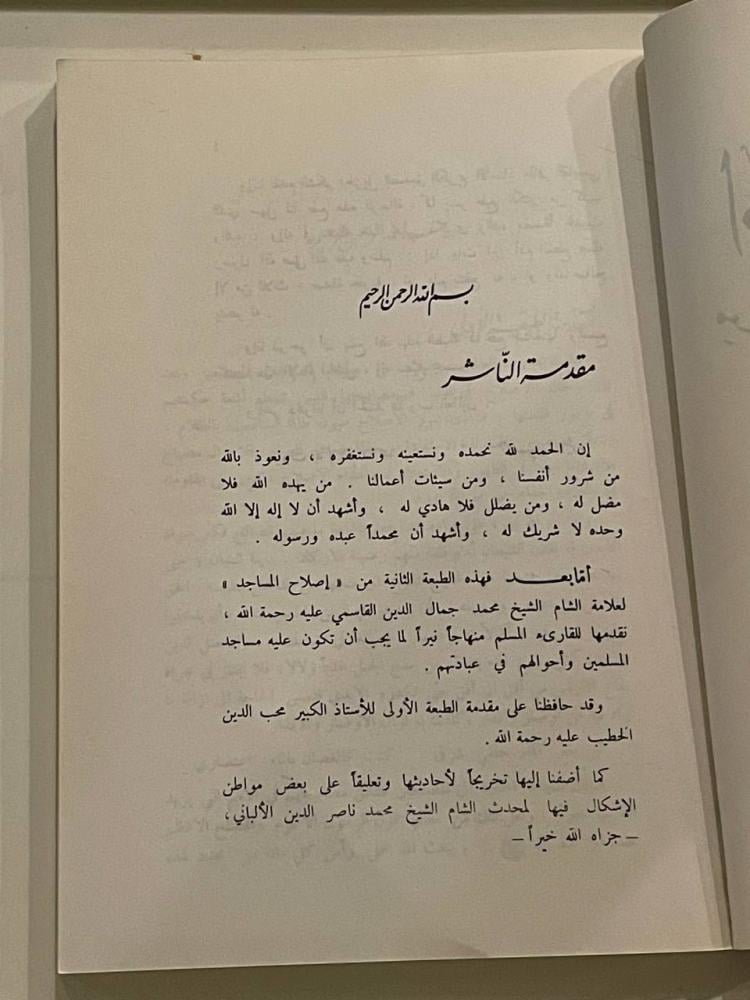 بسم الله الرحمن الرحيم
مقدمة النّاشر
إن الحمد لله نحمده ونستعينه ونستغفره ، ونعوذ بالله
من شرور أنفسنا ، ومن سيئات أعمالنا . من يهده الله فلا
مضل له ، ومن يضلل فلا هادي له ، وأشهد أن لا إله إلا الله
وحده لا شريك له ، وأشهد أن محمداً عبده ورسوله .
أمّا بعد فهذه الطبعة الثانية من « إصلاح المساجد »
لعلامة الشام الشيخ محمد جمال الدين القاسمي عليه رحمة الله ،
نقدمها للقارىء المسلم منهاجاً نيراً لما يجب أن تكون عليه مساجد
المسلمين وأحوالهم في عبادتهم .
وقد حافظنا على مقدمة الطبعة الأولى للأستاذ الكبير محب الدين
الخطيب عليه رحمة الله .
كما أضفنا إليها تخريجاً لأحاديثها وتعليقاً على بعض مواطن
الإشكال فيها لمحدث الشام الشيخ محمد ناصر الدين الألباني ،
ــ جزاه الله خيراً ــ